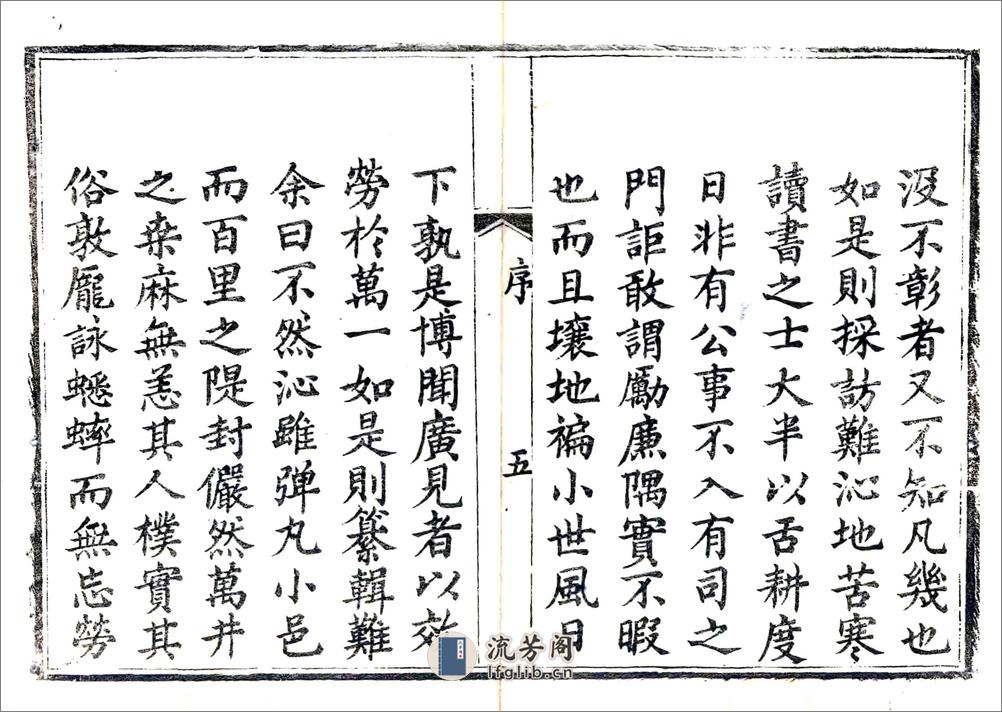 沒不彰者又不知凡幾也
如是則採訪難沁地苦寒
讀書之士大半以舌耕度
日非有公事不入有司之
門詎敢謂勵廉隅實不暇
也而且壤地褊小世風日
序
五
下孰是博聞廣見者以效
勞於萬一如是則纂輯難
余曰不然沁雖弹丸小邑
而百里之隄封儼然萬井
之桒麻無恙其人樸實其
俗敦龐詠蟋蟀而無忘勞
流芳阁
lfglib.cn